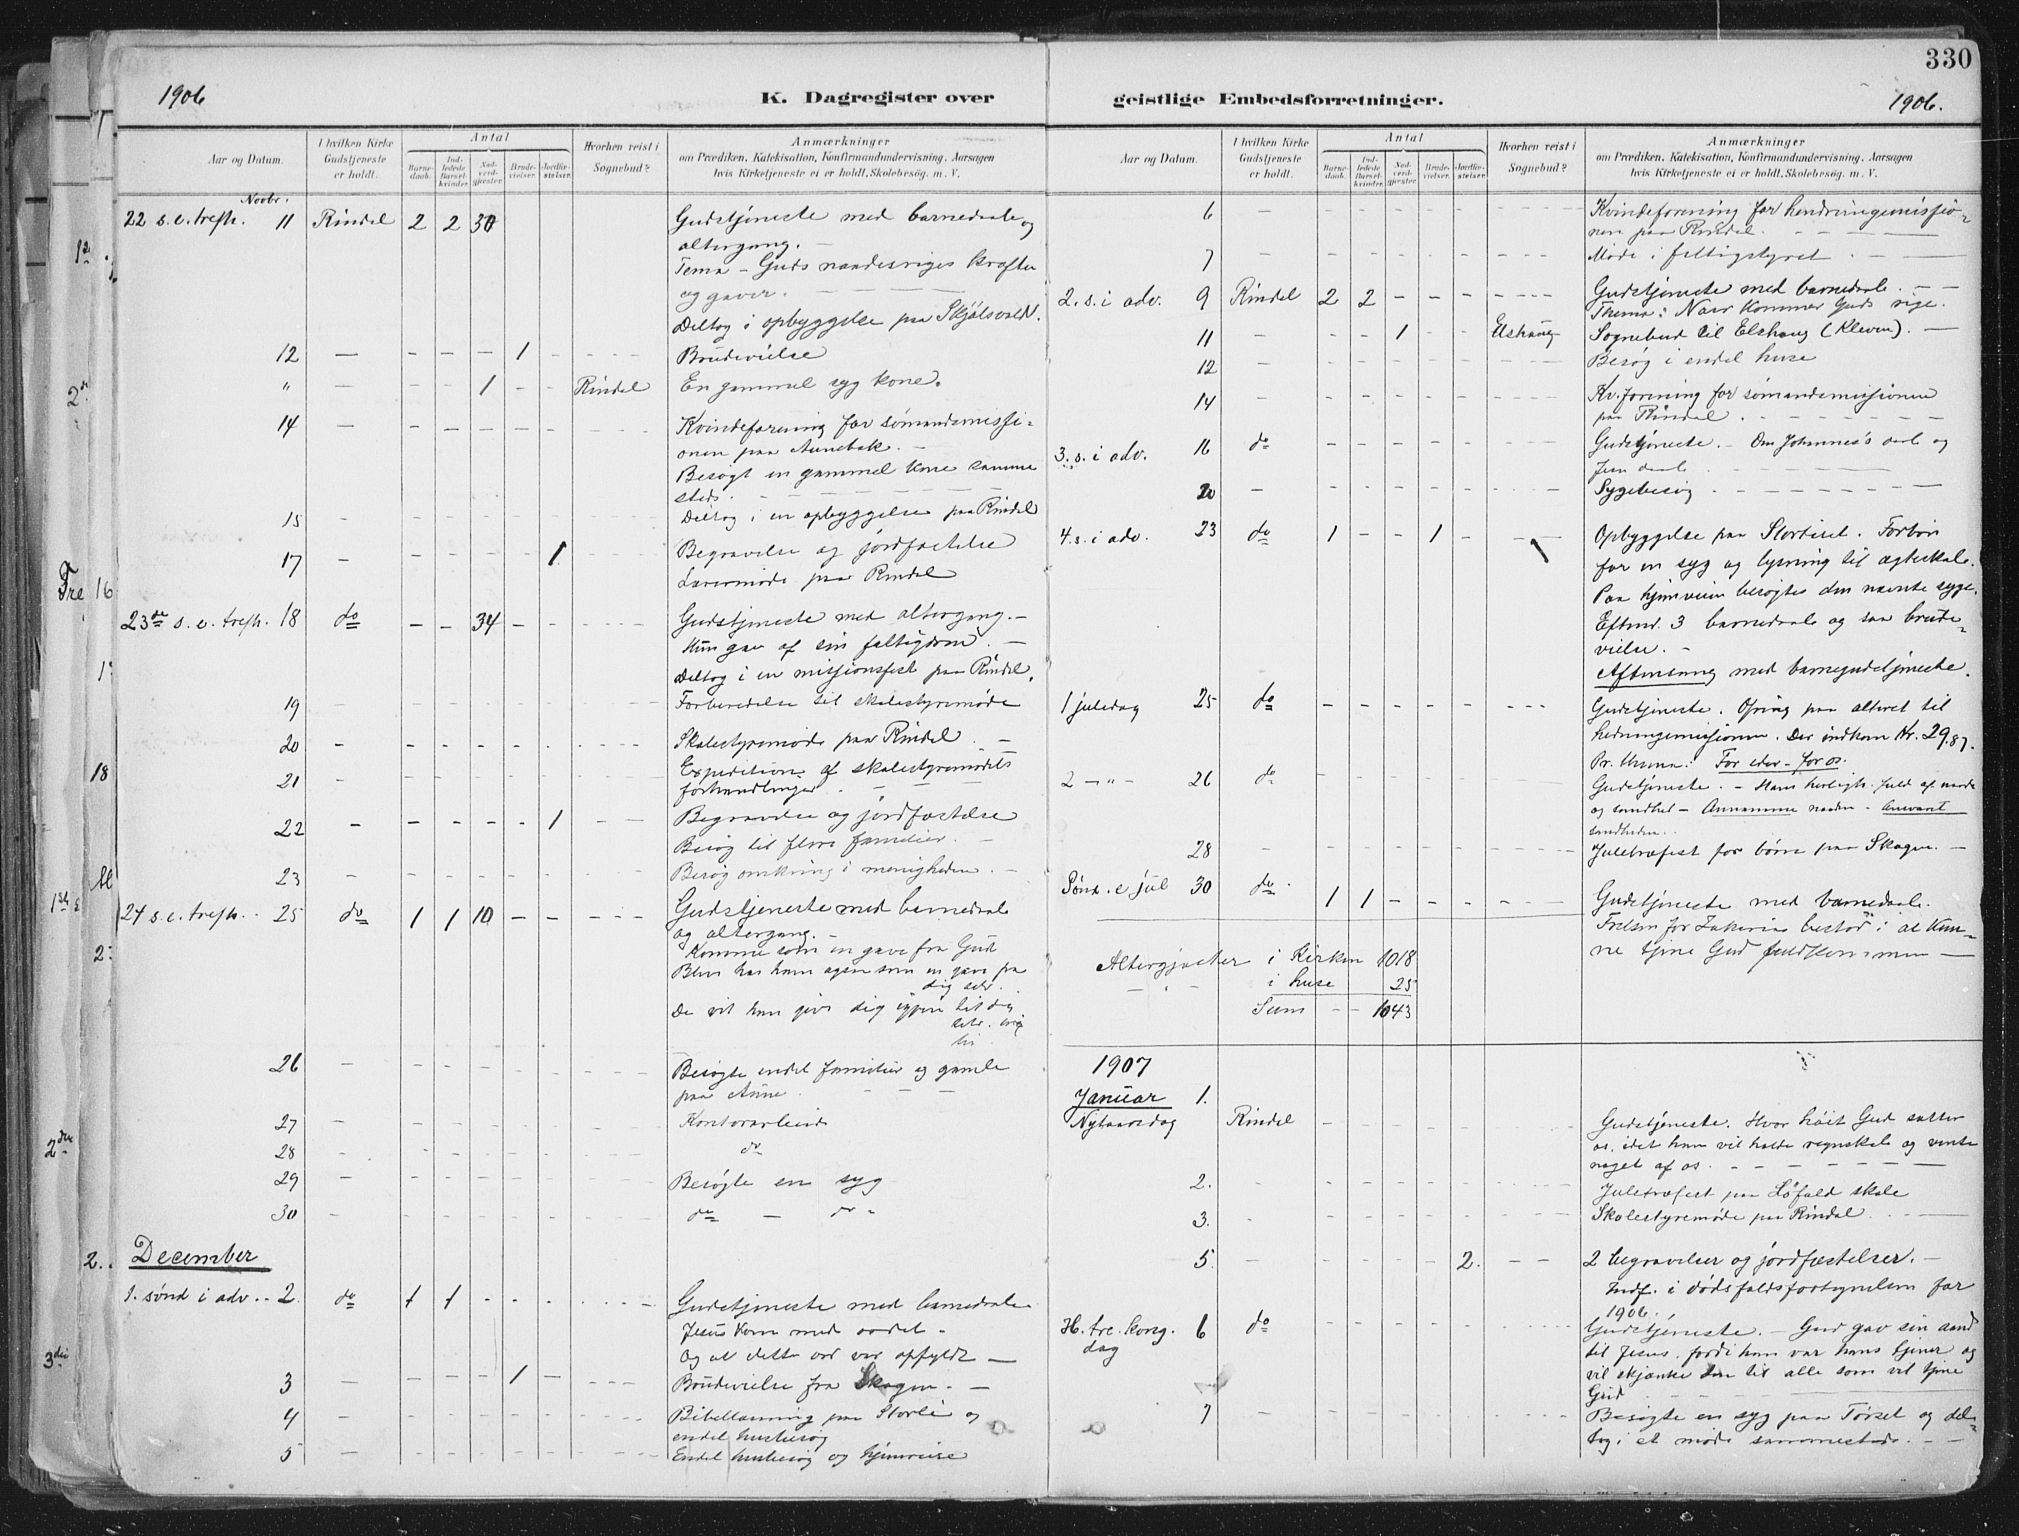 330
1906
K. Dagregister over
geistlige Embedsforretninger.
1906.
Aar og Datum.
I hvilken Kirke Gudstjeneste er holdt.
Antal
Barnedaab.
Indledede Barselkvinder.
Nadverdgjester
Brudevielser.
Jordfæstelser.
Hvorhen reist i Sognebud?
Anmærkninger
om Prædiken, Katekisation, Konfirmandundervisning, Aarsagen
hvis Kirketjeneste ei er holdt, Skolebesøg. m. V.
Novbr.
22 s. e. trefh. 11 Rindal 2 2 30 Gudstjeneste med barnedaab og
altergang. —
Tema – Guds naaderiges kræfter
og gaver. —
Deltog i opbyggelse paa
12 — — — — 1 — Brudevielse
" — — — 1 — — Rindal En gammel syg kone.
14 — Kvindeforening for sømandsmissi-
onen paa Aunebak. —
Besøgt en gammel kone samme
steds. —
15 — Deltog i en opbyggelse paa Rindal
17 — 1 Begravelse og jordfæstelse
Lærermøde paa Rindal
23de s. e. trefh. 18 do — — 34 — — Gudstjeneste med altergang. —
Hun gav af sin fattigdom. —
Deltog i en missionsfest paa Rindal.
19 — Forberedelse til skolestyremøde
20 — Skolestyremøde paa Rindal. —
21 — Expedition af skolestyremødets
forhandlinger. —
22 — — — — — 1 Begravelse og jordfæstelse
Besøg til flere familier. —
23 — Besøg omkring i menigheden. —
24 s. e. trefh. 25 do 1 1 10 — — Gudstjeneste med barnedaab
og altergang. —
Komme som en gave fra Gud
dig selv.
26 — Besøgte endel familier og gamle
paa Aune. —
27 — Kontorarbeide
28 — do
29 — Besøgte en syg
30 — do — do
December
1. sønd i adv. 2 do 1 1 — Gudstjeneste med barnedaab
Jesus kom med ordet –
og at dette ord var opfyldt —
3 — — — — 1 — Brudevielse fra Skogen. —
4 — Bibellæsning paa Storli og
endel husbesøg
5 — Endel husbesøg og hjemreise
Aar og Datum.
I hvilken Kirke Gudstjeneste er holdt.
Antal
Barnedaab.
Indledede Barselkvinder.
Nadverdgjester
Brudevielser.
Jordfæstelser.
Hvorhen reist i Sognebud?
Anmærkninger
om Prædiken, Katekisation, Konfirmandundervisning, Aarsagen
hvis Kirketjeneste ei er holdt, Skolebesøg. m. V.
6 — Kvindeforening for hedningemissio-
nen paa Rindal. —
7 — Møde i fattigstyret. —
2. s. i adv. 9 Rindal 2 2 — Gudstjeneste med barnedaab. —
Thema: Naar kommer Guds rige.
11 — — — 1 — — Elshaug Sognebud til Elshaug (Kleven). —
12 — Besøg i endel huse
14 — Kv.forening for sømandsmissionen
paa Rindal. —
3. s. i adv. 16 do — Gudstjeneste. – Om Johannes's daab og
Jesu daab. —
20 — Sygebesøg. —
4. s. i adv. 23 do 1 — — 1 — — Opbyggelse paa Stortiset. Forbøn
for en syg og lysning til ægteskab.
Paa hjemveien besøgtes den nævnte syge.
Eftmd. 3 barnedaab og saa brude-
vielse. —
Aftensang med barnegudstjeneste.
1 juledag 25 do — Gudstjeneste. Ofring paa alteret til
hedningemissionen. Der indkom Kr. 29.87.
For eder – for os.
2 — " — 26 do — Gudstjeneste. – Hans herligh. fuld af naade
og sandhed – Annamme naaden –
sandheden.
28 — Juletræfest for børn paa Skogen. —
Sønd. e jul 30 do 1 1 — Gudstjeneste med barnedaab.
Frelsen for Zakarias bestod i at kun-
ne tjene Gud fuldkommen —
Altergjæster i Kirken 1018
— " — i huse 25
Sum — — 1043
1907
Januar 1.
Nytaarsdag Rindal — Gudstjeneste. Hvor høit Gud sætter
os, idet han vil holde regnskab og vente
noget af os. —
2. — Juletræfest paa Løfald skole
3. — Skolestyremøde paa Rindal. —
5. — 2. — — 2 begravelser og jordfæstelser. —
Indf. i dødsfaldsfortegnelsen for
1906.
H. tre kong. dag 6 do Gudstjeneste. – Gud gav sin aand
til Jesus, fordi han var hans tjener og
vil skjænke den til alle som vil tjene
Gud —
7 — Besøgte en syg paa Tørset og del-
tog i et møde sammesteds. —